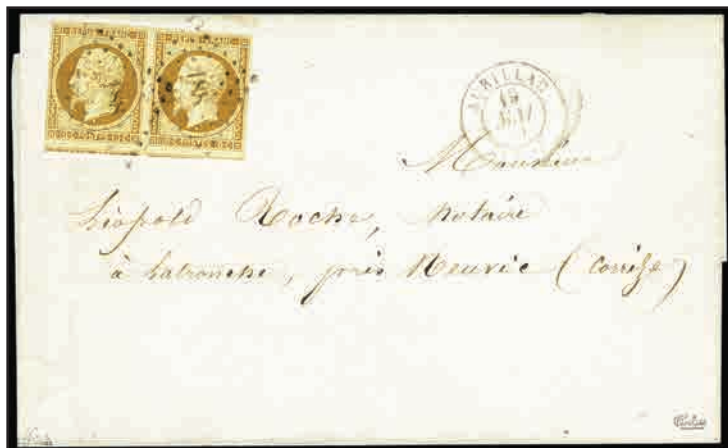 AURILLAC
18
MAI
Monsieur
Léopold Roche, notaire
à Latronche, près Neuvic (Corrèze)